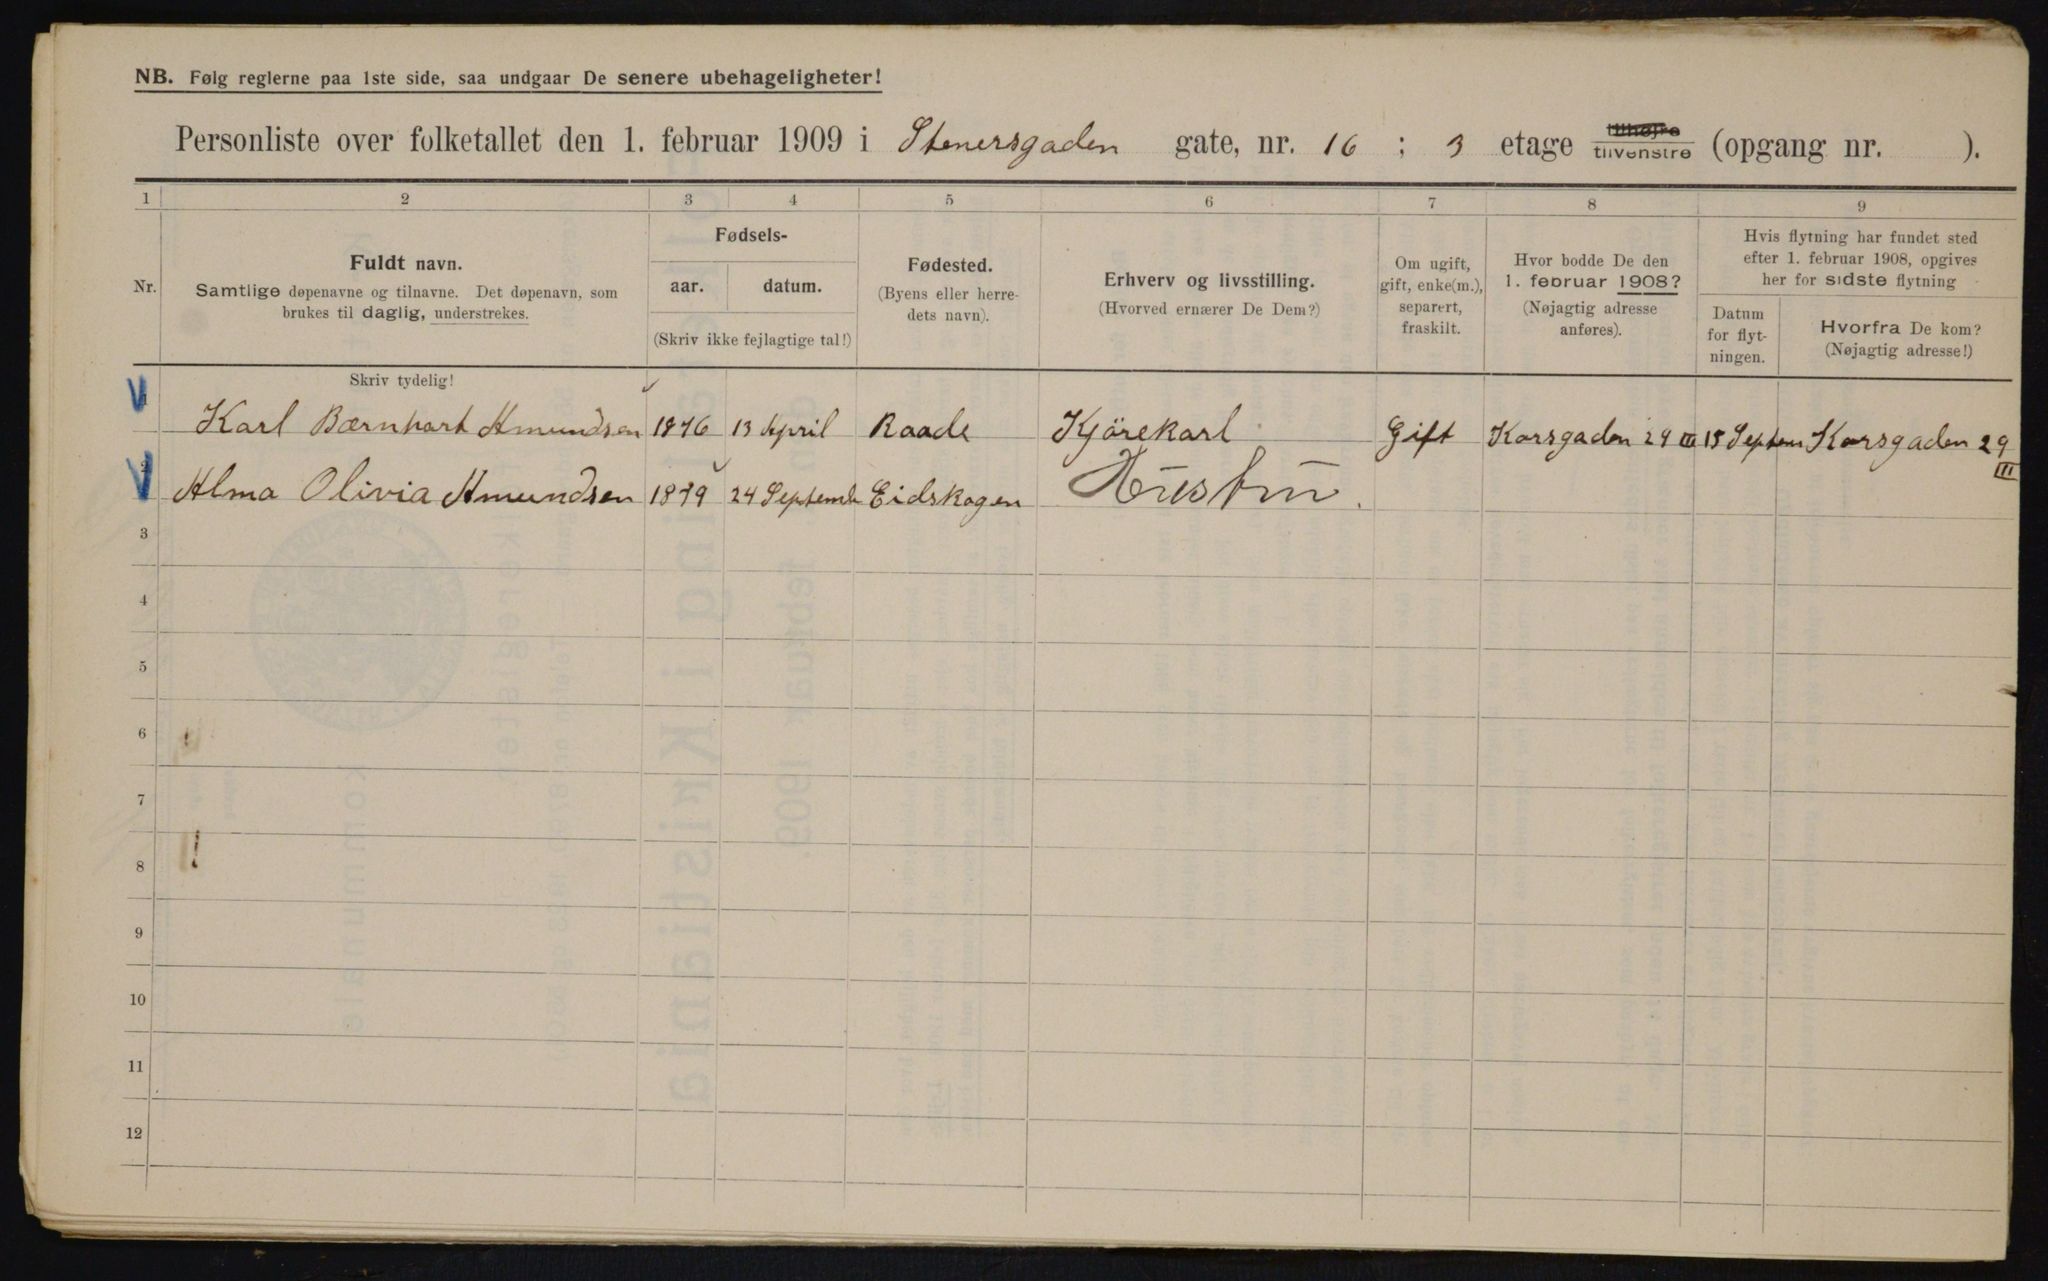 NB. Følg reglerne paa 1ste side, saa undgaar De senere ubehageligheter!
Personliste over folketallet den 1. februar 1909 i Stenersgaden gate, nr. 16 ; 3 etage tilhøjre tilvenstre (opgang nr. ).
1 2 3 4 5 6 7 8 9
Nr.
Fuldt navn.
Samtlige døpenavne og tilnavne. Det døpenavn, som
brukes til daglig, understrekes.
Skriv tydelig!
Fødsels-
aar. datum.
(Skriv ikke fejlagtige tal!)
Fødested.
(Byens eller herre-
dets navn).
Erhverv og livsstilling.
(Hvorved ernærer De Dem?)
Om ugift,
gift, enke(m.),
separert,
fraskilt.
Hvor bodde De den
1. februar 1908?
(Nøjagtig adresse
anføres).
Hvis flytning har fundet sted
efter 1. februar 1908, opgives
her for sidste flytning
Datum
for flyt-
ningen.
Hvorfra De kom?
(Nøjagtig adresse!)
1 Karl Bærnhart Amundsen 1876 13 April Raade Kjörekarl Gift Korsgaden 29 III 15 Septem Korsgaden 29 III
2 Alma Olivia Amundsen 1879 24 Septemb Eidskogen Hustru.
3
4
5
6
7
8
9
10
11
12